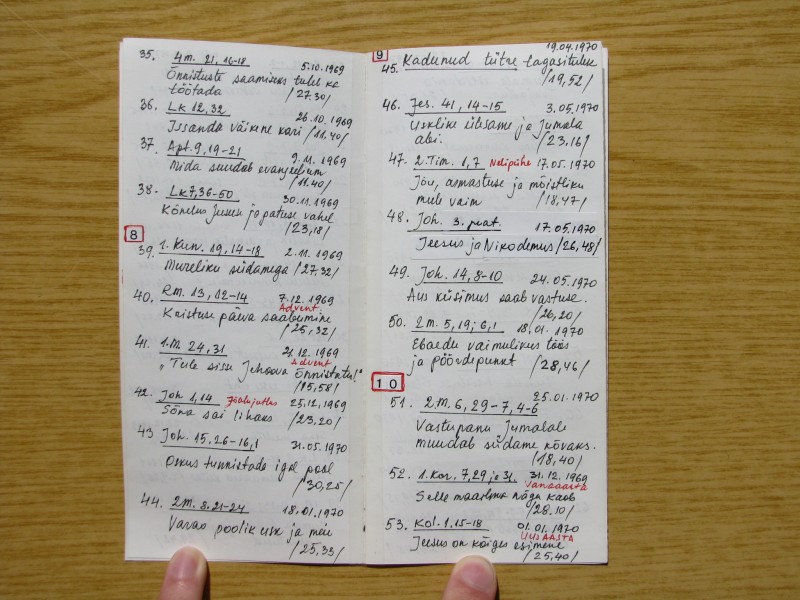 35. 4m. 21, 16-18
5.10.1969
Õnnistuste saamiseks tuleb ka
töötada /27.30/
36. Lk 12,32
26.10.1969
Issanda väikene kari /11,40/
37. Apt. 9,19-21
9.11.1969
Mida suudab evangeelium
/11.40/
38. Lk 7,36-50
30.11.1969
Kõnelus Jeesus ja patuse vahel
/23,18/
8
39. 1. Kun. 19, 14-18 2.11.1969
Mureliku südamega /27.32/
40. Rm. 13, 12-14 7.12.1969
Advent
Kristuse päeva saabumine
/25,32/
41. 1.M. 24,31 21.12.1969
Advent
"Tule sisse Jehoova Õnnistatu!"
/15,58/
42. Joh 1,14 Jõulujutlus 25.12.1969
Sõna sai lihaks /23,20/
43 Joh. 15,26-16,1 31.05.1970
Oskus tunnistada igal pool
/30,25/
44. 2m. 8.21-24 18.01.1970
Varao poolik usk ja meie
/25,35/
9
19.04.1970
45. Kadunud tütre tagasitulek
/19,52/
46. Jes. 41, 14-15 3.05.1970
Usklike üksame ja Jumala
abi. /23,16/
47. 2.Tim. 1,7 Nelipühe 17.05.1970
Jõu, armastuse ja mõistliku
meele vaim /18,47/
48. Joh. 3. peat. 17.05.1970
Jeesus ja Nikodemus /26,48/
49. Joh. 14,8-10 24.05.1970
Aus küsimus saab vastuse.
/26,20/
50. 2m. 5,19; 6,1 18.01.1970
Ebaedu vaimulikus töös
ja pöördepunkt /28,46/
10
25.01.1970
51. 2.M. 6,29-7,4-6
Vastupanu Jumalale
muudab südame kõvaks.
/18,40/
52. 1.Kor. 7,29 ja 31. 31.12.1969
Vanaaasta
Selle maailma nägu kaob
/28.10/
53. Kol. 1.15-18 01.01.1970
UUSAASTA
Jeesus on kõiges esimene
/25,40/